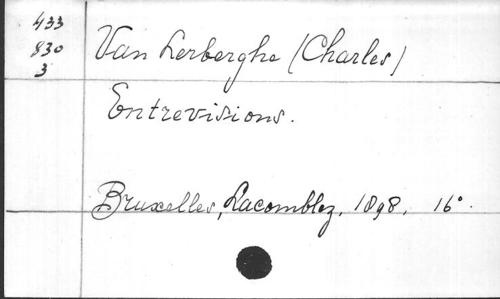 433
830
3
Van Lerberghe (Charles)
Entrevisions.
Bruxelles, Lacomblez, 1898, 16°.